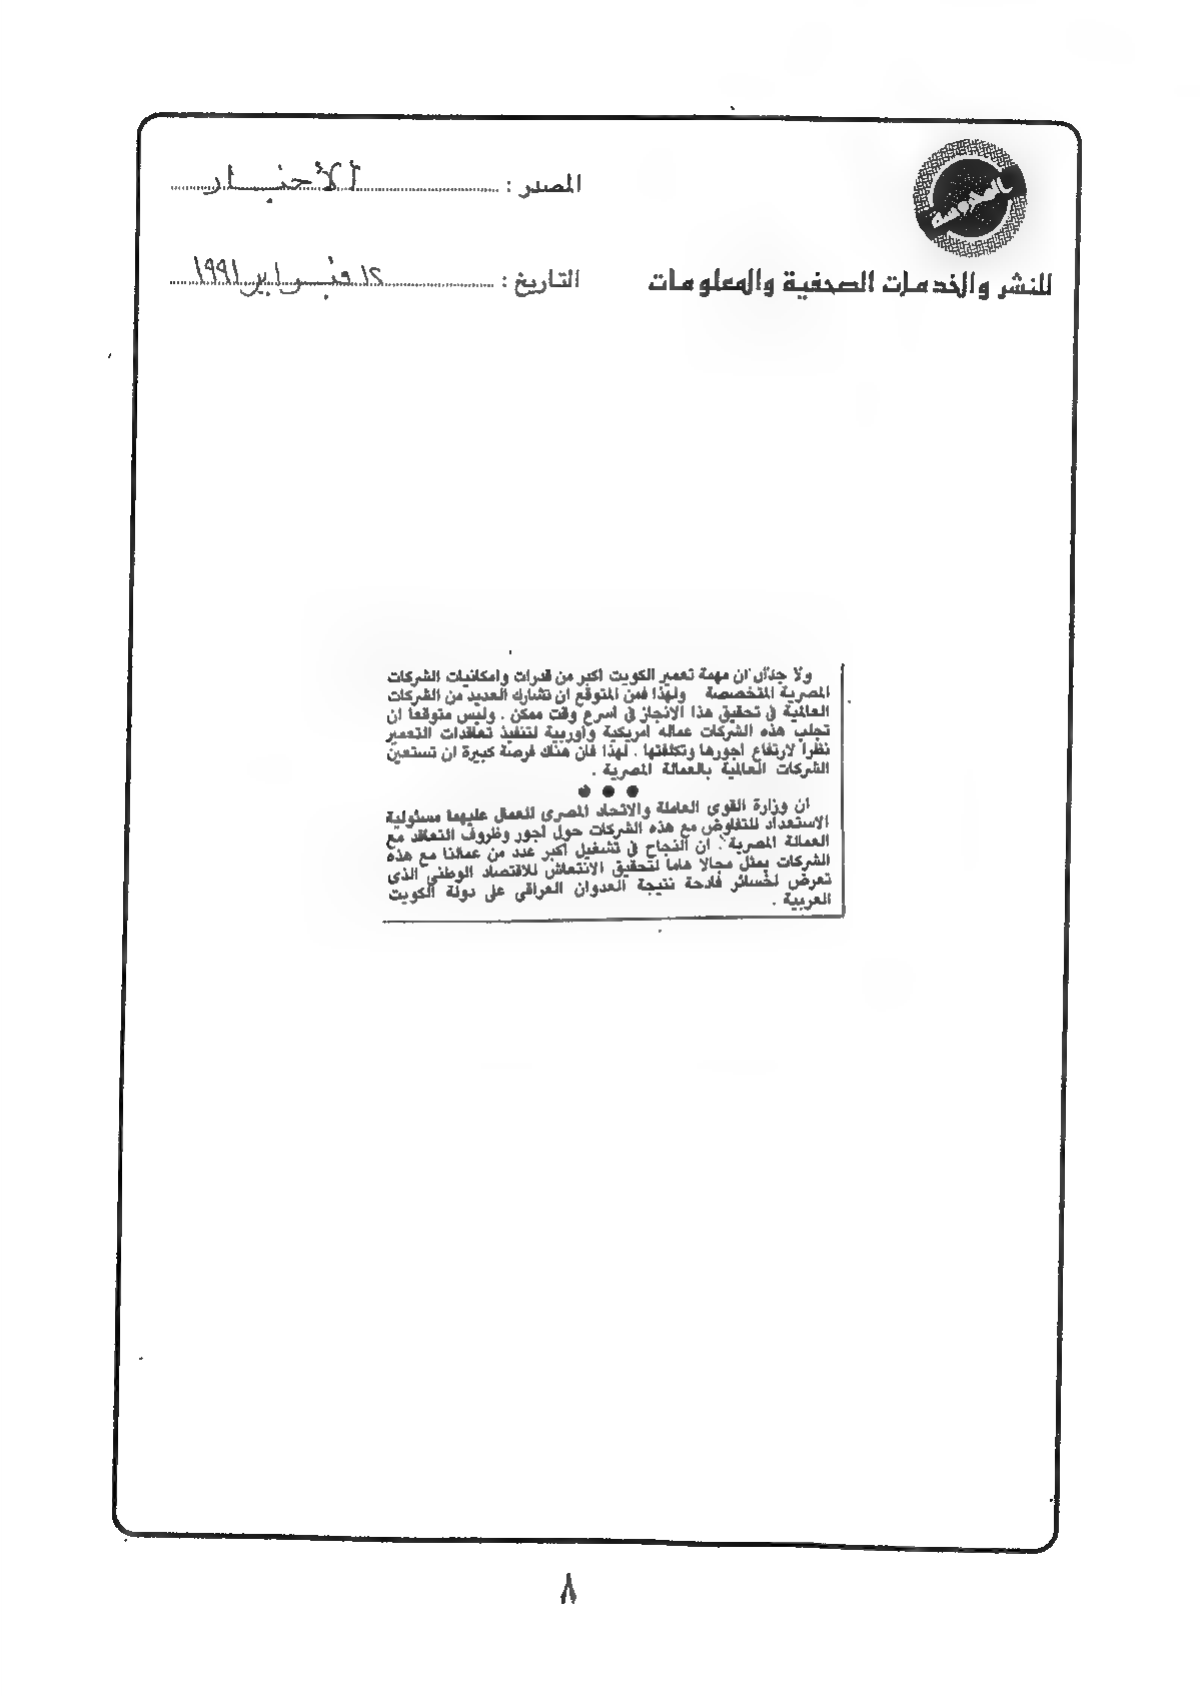 المصدر : الأخبار
التاريخ : ١٢ فبراير ١٩٩١
للنشر والخدمات الصحفية والمعلومات
ولا جدال ان مهمة تعمير الكويت اكبر من قدرات وامكانيات الشركات
المصرية المتخصصة ولهذا فمن المتوقع ان تشارك العديد من الشركات
العالمية فى تحقيق هذا الانجاز فى اسرع وقت ممكن . وليس متوقعا ان
تجلب هذه الشركات عماله امريكية واوربية لتنفيذ تعاقدات التعمير
نظرا لارتفاع اجورها وتكلفتها . لهذا فان هناك فرصة كبيرة ان تستعين
الشركات العالمية بالعمالة المصرية .
● ● ●
ان وزارة القوى العاملة والاتحاد المصرى للعمال عليهما مسئولية
الاستعداد للتفاوض مع هذه الشركات حول اجور وظروف التعاقد مع
العمالة المصرية . ان النجاح فى تشغيل اكبر عدد من عمالنا مع هذه
الشركات يمثل مجالا هاما لتحقيق الانتعاش للاقتصاد الوطنى الذى
تعرض لخسائر فادحة نتيجة العدوان العراقى على دولة الكويت
العربية .
٨